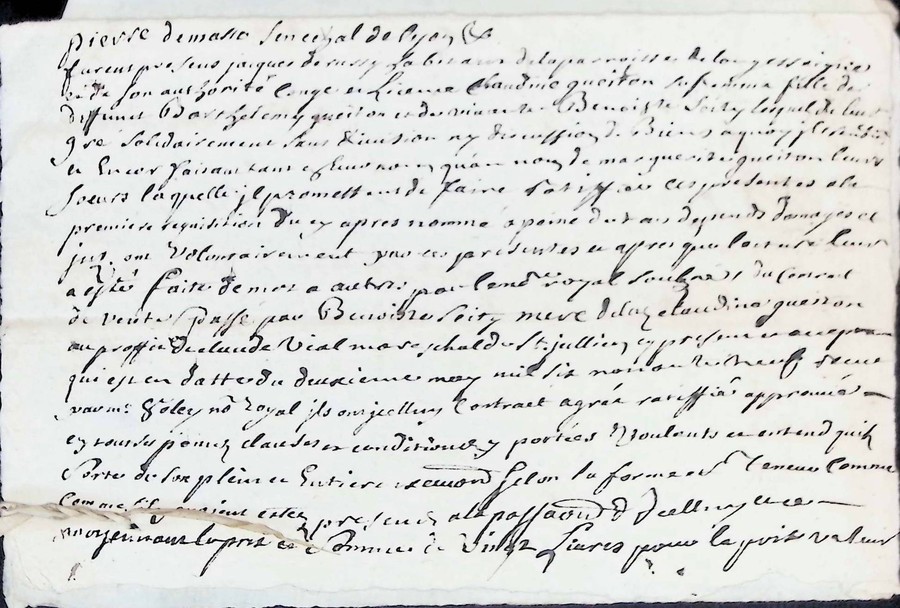 pierre demasso senechal de lyon &
furent presens jacques derussy laboureur de la parroisse de longessaigne
et de son authorité congé et licence Claudine queiton sa femme fille de
deffunct Barthelemy queiton et de vivante Benoiste Seity lesquels de leur
gré solidairement sans division ny discussion de Biens a quoy
et Encor faisant tant en leur nom qu'au nom de marguerite queiton leur
soeur laquelle jl promettent de faire ratiffier ces presentes a la
premiere requisition du cy apres nommé a peine de tous depends domages et
jnt. ont volontairement par ces presentes et apres que lecture leur
a esté faite de mot a autre par le not.re royal soubz.né du Contrat
de vente passé par Benoiste Seity mere de lad. claudine queiton
au proffit de claude Vial mareschal de St jullien cy present
qui est en datte du deuxieme may mil six nonante neuf receu
par m.e no.re Royal jls ont jcelluy Contract agréé ratiffié approuvé
en tous ses points clauses et conditions y portées Voulants et entend quil
sorte de son plein et Entiere selon sa forme et teneur Comme
Comme sils avoient estes presents a la passation d'jcelluy et ce
moyennant le prix et somme de Vingt livres pour la